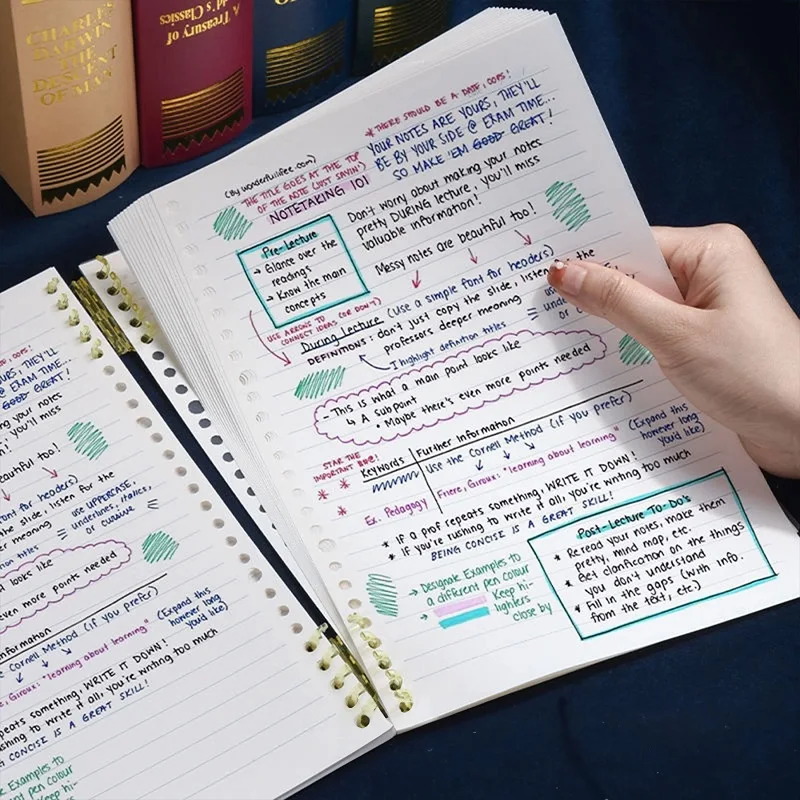 CHARLES
DARWIN
THE
DESCENT
OF MAN
A Treasury of
ld's Classics
(By wonderfullifee.com)
* THERE SHOULD BE A DATE, OOPS!
THE TITLE GOES AT THE TOP
OF THE NOTE (JUST SAYIN')
NOTETAKING 101
YOUR NOTES ARE YOURS, THEY'LL
BE BY YOUR SIDE @ EXAM TIME...
SO MAKE 'EM GOOD GREAT!
Don't worry about making your notes
pretty DURING lecture, you'll miss
valuable information!
Messy notes are beautiful too!
Pre-Lecture
→ Glance over the
readings
→ Know the main
concepts
USE ARROWS TO
CONNECT IDEAS (OR DON'T)
During lecture (use a simple font for headers)
DEFINITIONS: don't just copy the slide, listen the
professors deeper meaning
I highlight definition titles
- This is what a main point looks like
↳ A subpoint
• Maybe there's even more points needed
STAR THE
IMPORTANT
Keywords
Further Information
Use the Cornell Method (if you prefer)
(Expand this
however long
you'd like)
Ex. Pedagogy
Friere, Giroux: "learning about learning"
* If a prof repeats something, WRITE IT DOWN!
* If you're rushing to write it all, you're writing too much
BEING CONCISE IS A GREAT SKILL!
→ Designate Examples to
a different pen colour
→ Keep hi-
lighters
close by
Post-Lecture To-Do's
* Reread your notes, make them
pretty, mind map, etc.
* Get clarification on the things
you don't understand
* Fill in the gaps (with info.
from the text, etc.)
OOPS!
OURS, THEY'LL
@ EXAM TIME...
GOOD GREAT!
ng your notes
you'll miss
eautiful too!
ont for headers)
slide, listen for the
er meaning
use UPPERCASE,
underlines, italics,
or cursive
ition titles
looks like
even more points needed
nformation
Cornell Method (if you prefer)
(Expand this
however long
you'd like)
e, Giroux: "learning about learning"
epeats something, WRITE IT DOWN!
ushing to write it all, you're writing too much
CONCISE IS A GREAT SKILL!
te Examples to
ent pen colour
Keep hi-